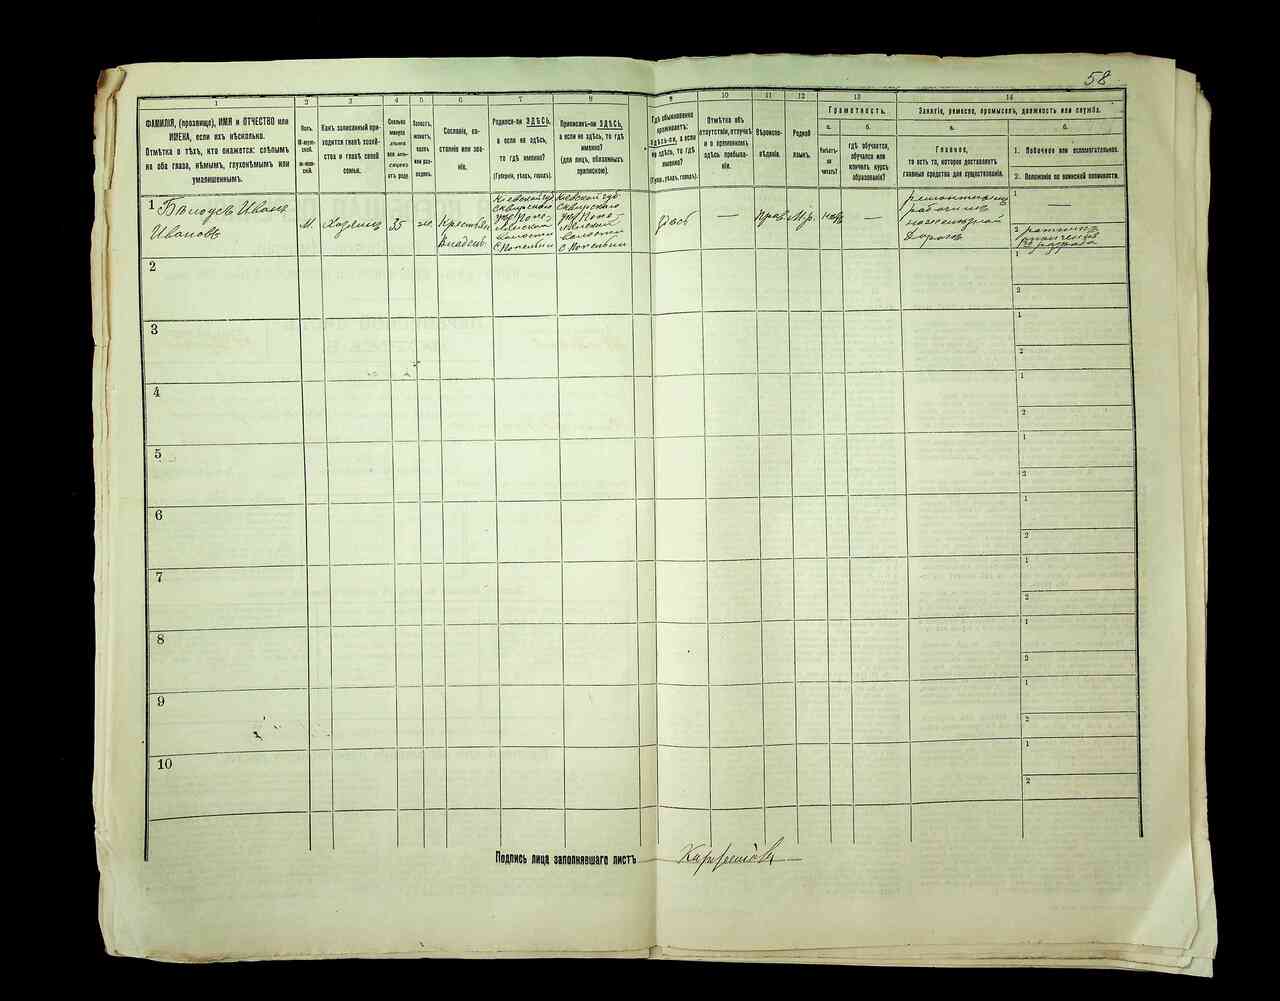 58
1 2 3 4 5 6 7 8 9 10 11 12 13 14
ФАМИЛІЯ, (прозвище), ИМЯ и ОТЧЕСТВО или
ИМЕНА, если ихъ нѣсколько.
Отмѣтка о тѣхъ, кто окажется: слѣпымъ
на оба глаза, нѣмымъ, глухонѣмымъ или
умалишеннымъ.
Полъ.
М-мужской.
Ж-женскій.
Какъ записанный приходится
главѣ хозяйства
и главѣ своей
семьи.
Сколько
минуло
лѣтъ
Холостъ,
женатъ,
вдовъ
или разведенъ.
Сословіе, состояніе
или званіе.
Родился-ли ЗДѢСЬ,
а если не здѣсь,
то гдѣ именно?
(Губернія, уѣздъ, городъ).
Приписанъ-ли ЗДѢСЬ,
а если не здѣсь, то гдѣ
именно?
(для лицъ, обязанныхъ
припискою).
Гдѣ обыкновенно
проживаетъ:
здѣсь-ли, а если
не здѣсь, то гдѣ
именно?
(Губ., уѣздъ, городъ).
Отмѣтка объ
отсутствіи, отлучкѣ
и о временномъ
здѣсь пребываніи.
Вѣроисповѣданіе.
Родной
языкъ.
Грамотность.
а.
Умѣетъ-ли
читать?
б.
гдѣ обучается,
обучался или
кончилъ курсъ
образованія?
Занятіе, ремесло, промыселъ, должность или служба.
а.
Главное,
то есть то, которое доставляетъ
главныя средства для существованія.
б.
1. Побочное или вспомогательное.
2. Положеніе по воинской повинности.
1 Бѣлоусъ Иванъ
Ивановъ
М.
Хозяинъ
35
жен.
Крестьян.
Владѣл.
Кіевской губ.
Сквирскаго
уѣз. Попельнской
волости
с. Попельни
Кіевской губ.
Сквирскаго
уѣз. Попельнской
волости
с. Попельни
здѣсь
—
Прав.
М.р.
нѣтъ
—
Ремонтный
рабочій
желѣзной
дороги
1 —
2 ратникъ
ополченія
разряда
2 1 2
3 1 2
4 1 2
5 1 2
6 1 2
7 1 2
8 1 2
9 1 2
10 1 2
Подпись лица заполнявшаго листъ